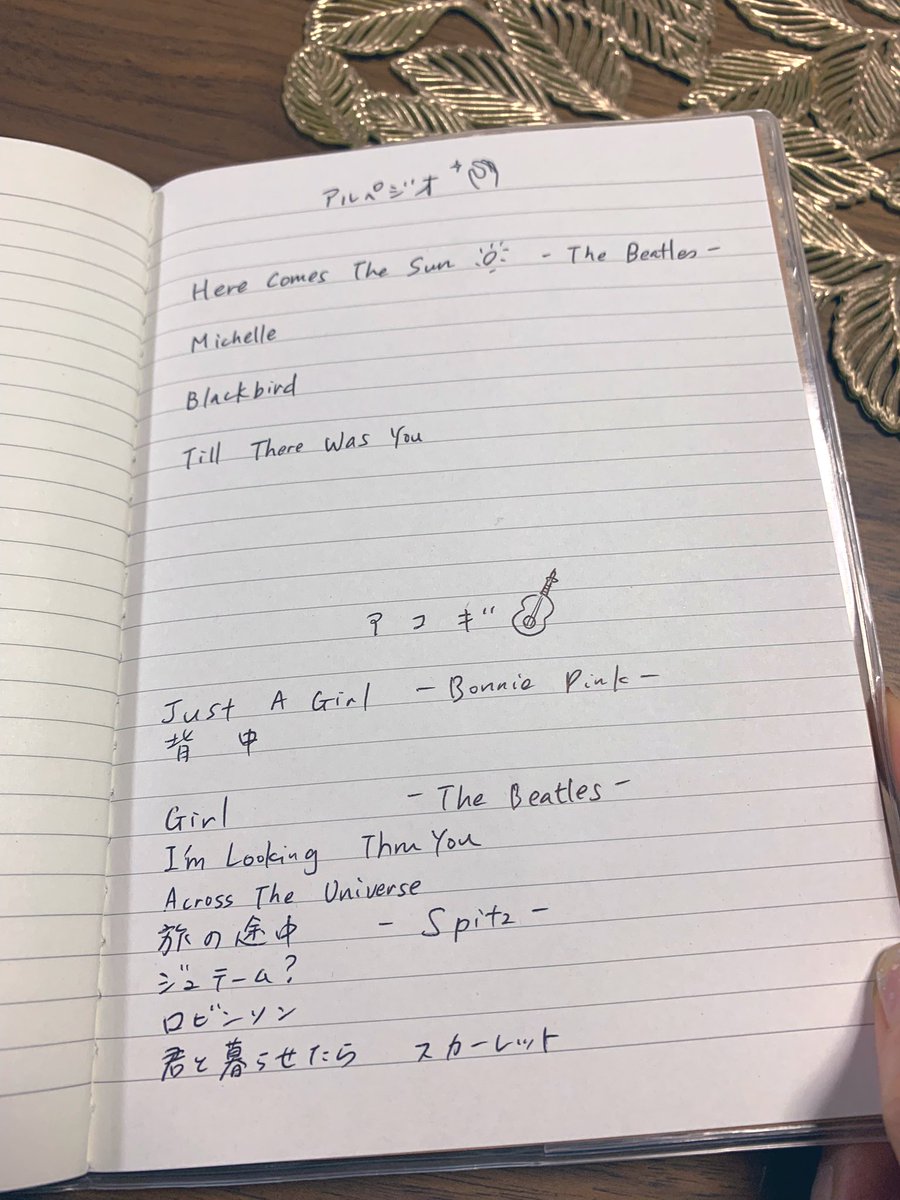 アルペジオ
Here Comes The Sun - The Beatles -
Michelle
Blackbird
Till There Was You
アコギ
Just A Girl - Bonnie Pink -
背中
Girl - The Beatles -
I'm Looking Thru You
Across The Universe
旅の途中 - Spitz -
ジュテーム?
ロビンソン
君と暮らせたら スカーレット